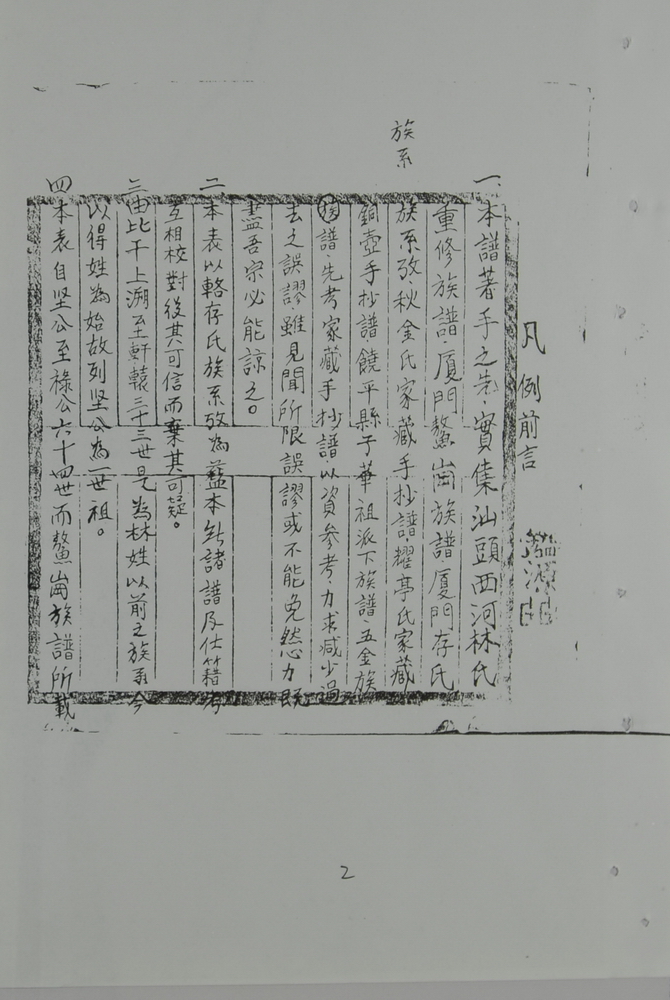 凡例前言
一 本譜著手之先實集汕頭西河林氏
重修族譜、厦門鰲崗族譜、厦門存氏
族系
族系攷、秋金氏家藏手抄譜、耀亭氏家藏
銅壺手抄譜、饒平縣于華祖派下族譜、五金族
譜、先考家藏手抄譜以資參考、力求减少過
去之誤謬雖見聞所限誤謬或不能免然心力既
盡吾宗必能諒之。
二 本表以輅存氏族系攷為藍本 諸譜及仕籍
互相校對後其可信而棄其可疑。
三 由比干上溯至軒轅三十三世是為林姓以前之族系今
以得姓為始故列坚公為一世祖。
四 本表自坚公至祿公六十四世而鰲崗族譜所載
2